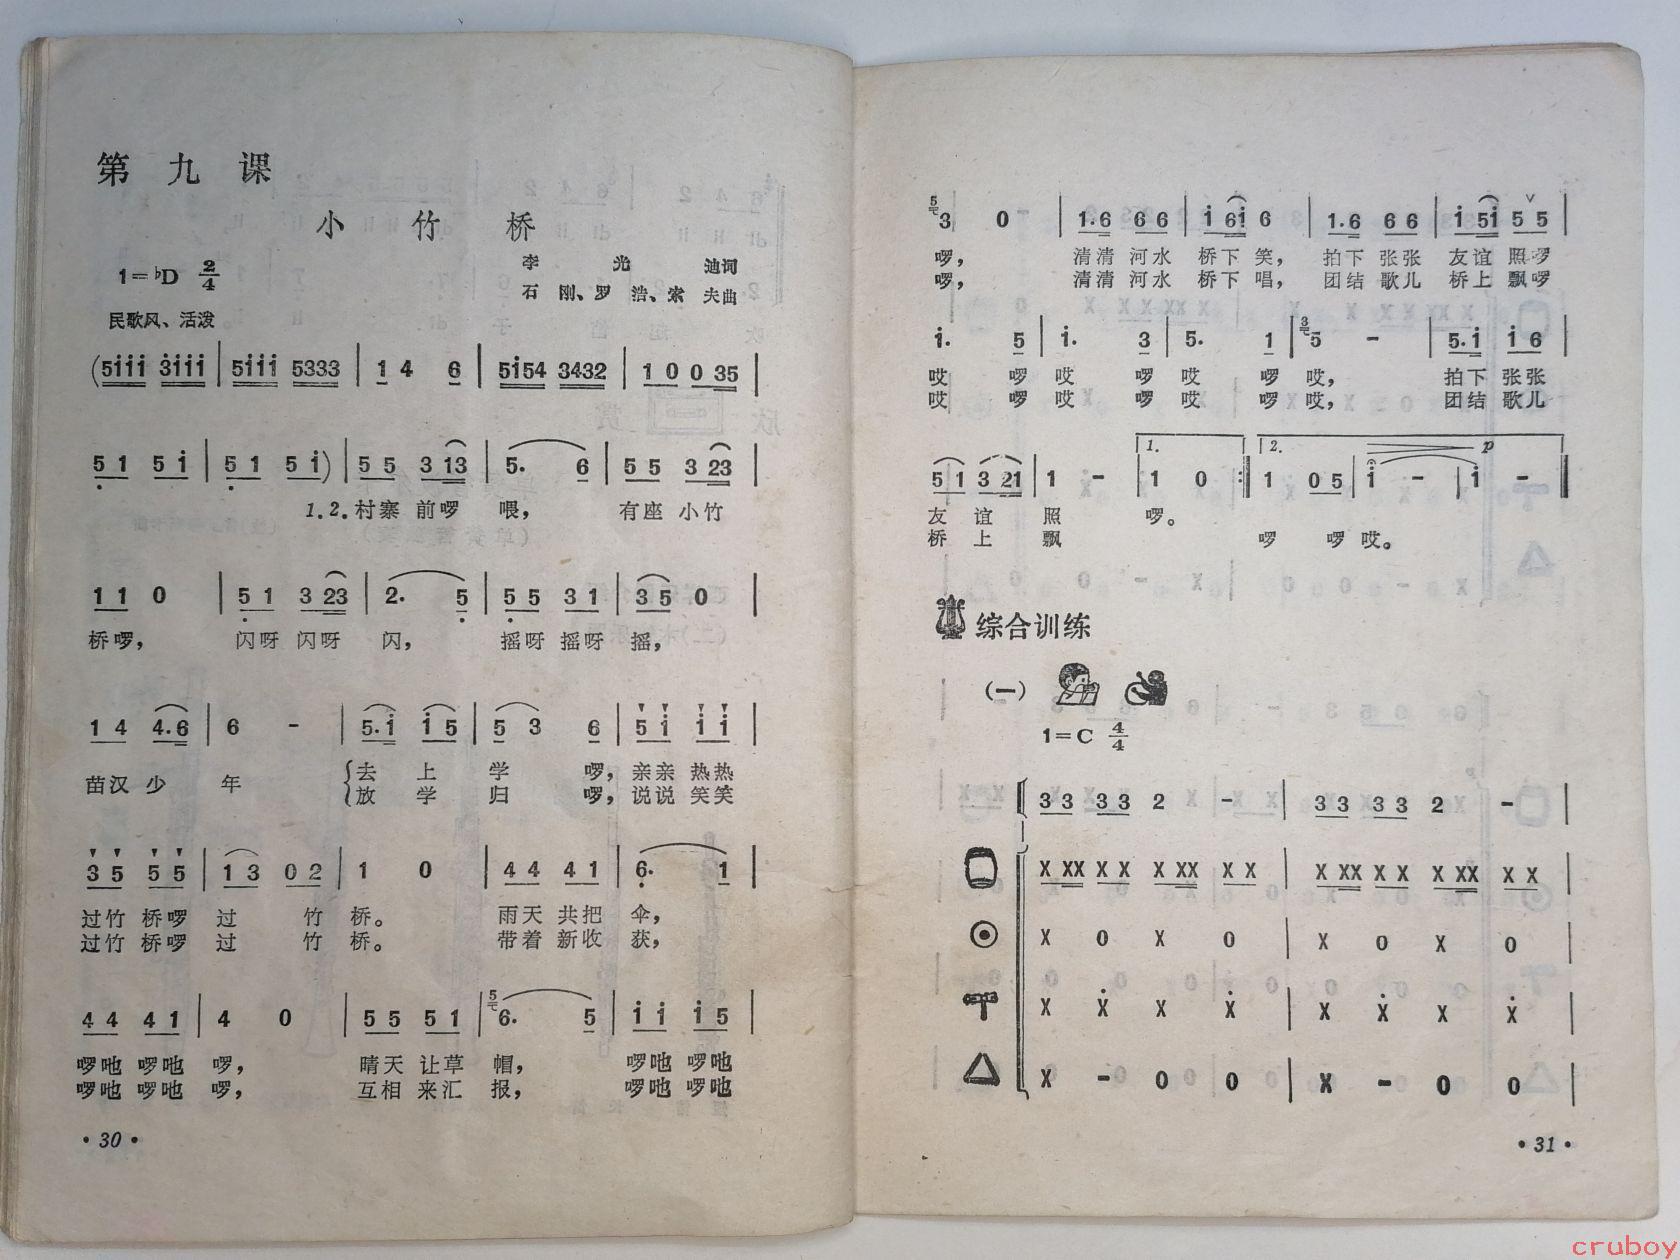 第九课
小竹桥
李光迪词
1=♭D 2/4
石刚、罗浩、索夫曲
民歌风、活泼
(5iii 3iii | 5iii 5333 | 1 4 6 | 5i54 3432 | 1 0 0 35 |
5 1 5 i | 5 1 5 i) | 5 5 3 13 | 5. 6 | 5 5 3 23 |
1.2.村寨前啰喂，有座小竹
1 1 0 | 5 1 3 23 | 2. 5 | 5 5 3 1 | 3 5 0 |
桥啰，闪呀闪呀闪，摇呀摇呀摇，
1 4 4.6 | 6 - | 5.i i 5 | 5 3 6 | 5 i i i |
苗汉少年 去上学啰，亲亲热热
放学归啰，说说笑笑
3 5 5 5 | 1 3 0 2 | 1 0 | 4 4 4 1 | 6. 1 |
过竹桥啰过竹桥。雨天共把伞，
过竹桥啰过竹桥。带着新收获，
4 4 4 1 | 4 0 | 5 5 5 1 | 5 6. 5 | i i i 5 |
啰吔啰吔啰，晴天让草帽，啰吔啰吔
啰吔啰吔啰，互相来汇报，啰吔啰吔
·30·
5 3 0 | 1.6 6 6 | i 6i 6 | 1.6 6 6 | i 5i 5 5 |
啰，清清河水桥下笑，拍下张张友谊照啰
啰，清清河水桥下唱，团结歌儿桥上飘啰
i. 5 | i. 3 | 5. 1 | 3 5 - | 5.i i 6 |
哎啰哎啰哎啰哎，拍下张张
哎啰哎啰哎啰哎，团结歌儿
1. 2. p
5 1 3 21 | 1 - | 1 0 :| 1 0 5 | i - | i - ‖
友谊照啰。
桥上飘啰啰哎。
综合训练
(一)
1=C 4/4
3 3 3 3 2 - | 3 3 3 3 2 - |
X XX X X X XX X X | X XX X X X XX X X |
X 0 X 0 | X 0 X 0 |
X Ẋ X Ẋ | X Ẋ X Ẋ |
X - 0 0 | X - 0 0 |
·31·
cruboy